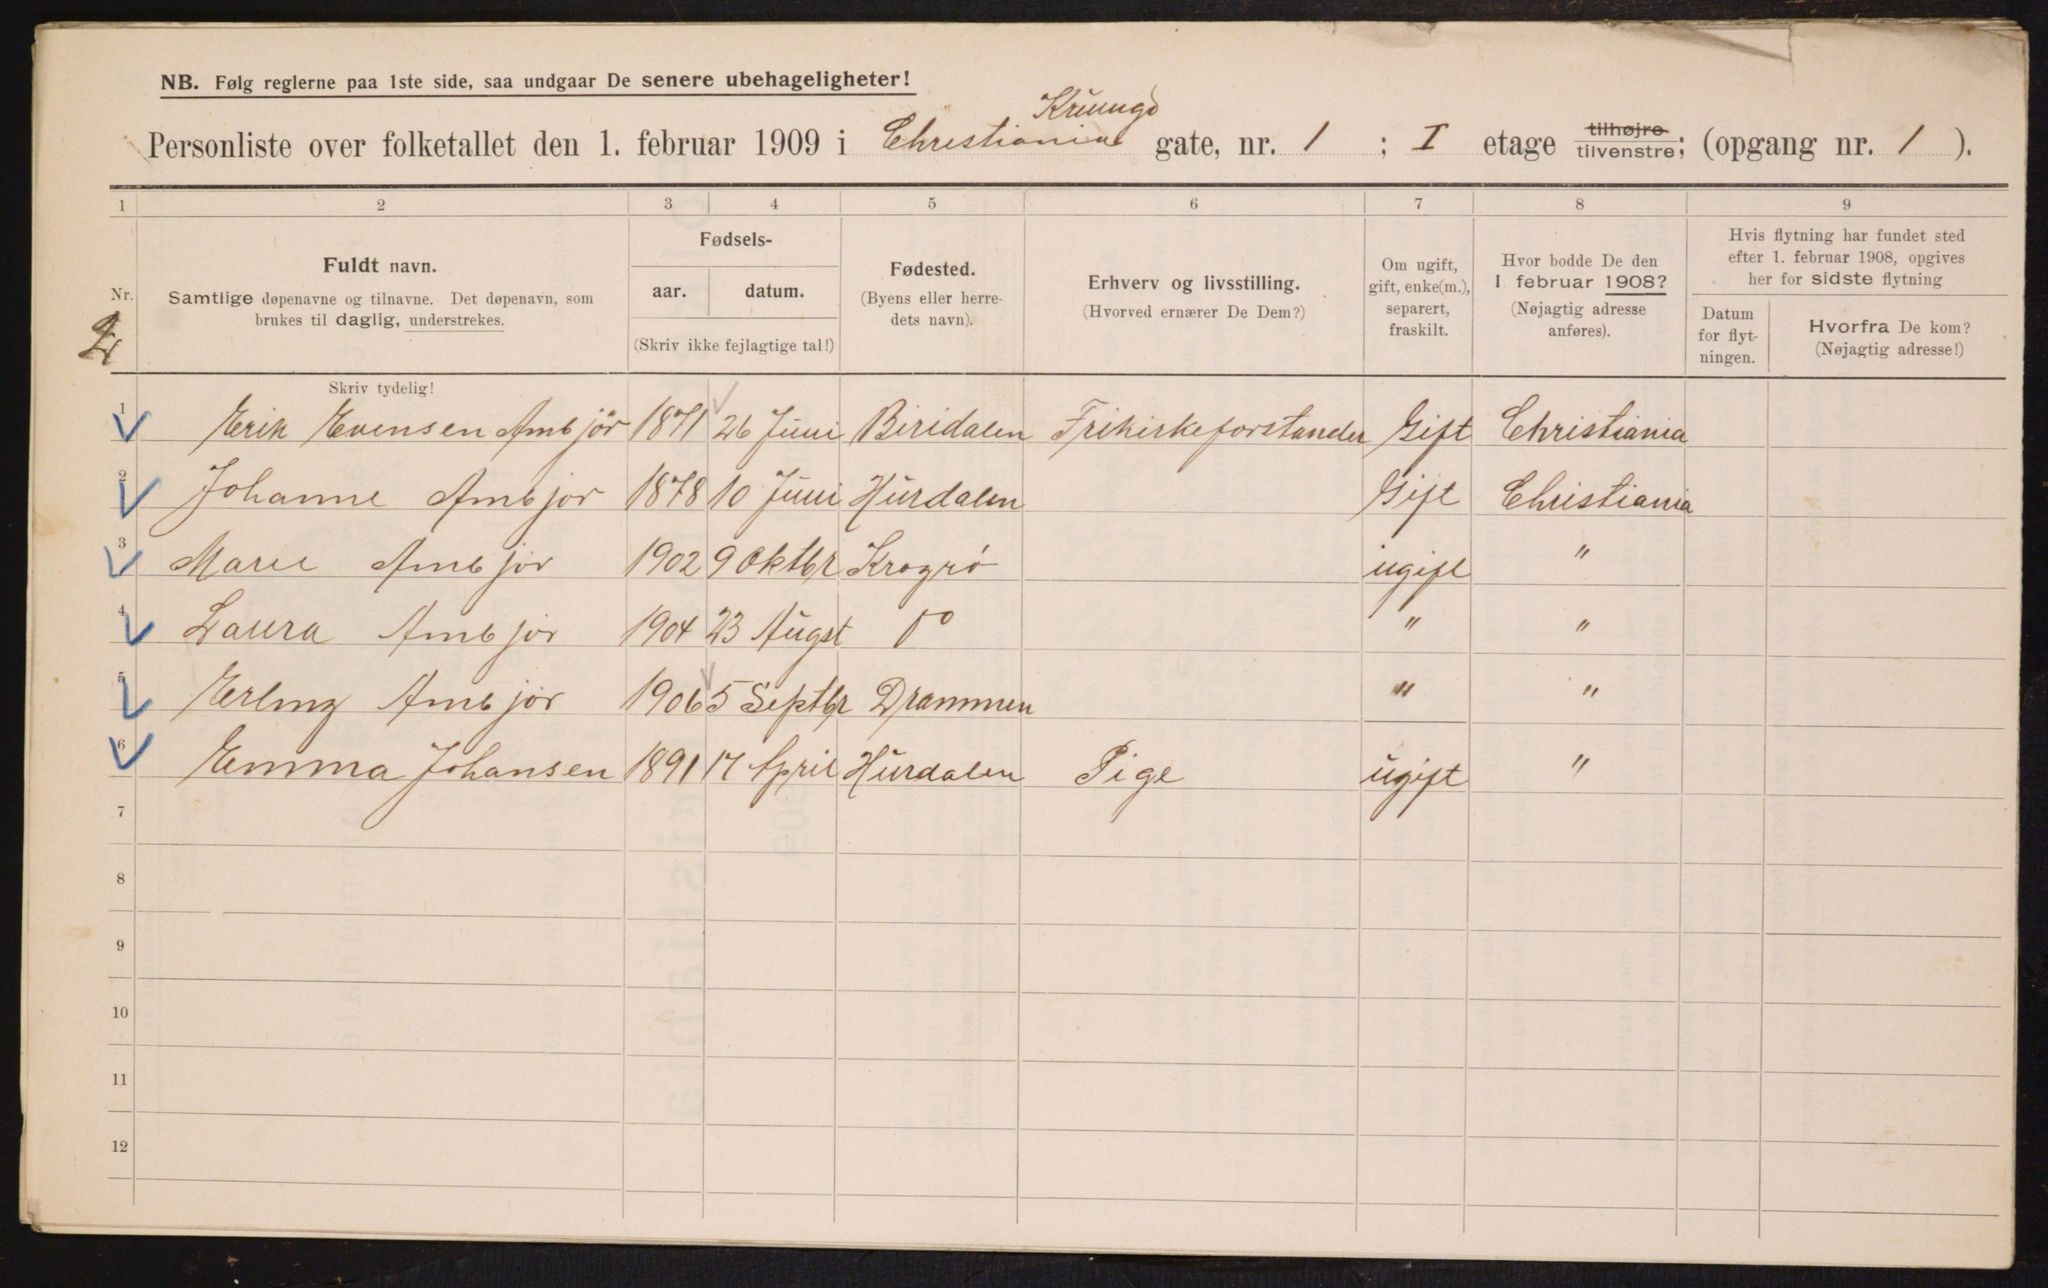 NB. Følg reglerne paa 1ste side, saa undgaar De senere ubehageligheter!
Personliste over folketallet den 1. februar 1909 i Christiania gate, nr. 1 ; I etage tilhøjre tilvenstre; (opgang nr. 1 ).
1 2 3 4 5 6 7 8 9
Nr.
Fuldt navn.
Samtlige døpenavne og tilnavne. Det døpenavn, som
brukes til daglig, understrekes.
Fødsels-
aar. datum.
(Skriv ikke fejlagtige tal!)
Fødested.
(Byens eller herre-
dets navn).
Erhverv og livsstilling.
(Hvorved ernærer De Dem?)
Om ugift,
gift, enke(m.),
separert,
fraskilt.
Hvor bodde De den
1 februar 1908?
(Nøjagtig adresse
anføres).
Hvis flytning har fundet sted
efter 1. februar 1908, opgives
her for sidste flytning
Datum
for flyt-
ningen.
Hvorfra De kom?
(Nøjagtig adresse!)
Skriv tydelig!
1 Erik Evensen Ambjør 1871 26 Juni Biridalen Frikirkeforstander Gift Christiania
2 Johanne Ambjør 1878 10 Juni Hurdalen Gift Christiania
3 Marie Ambjør 1902 9 Oktbr Kragrö ugift "
4 Laura Ambjør 1904 23 Augst Do " "
5 Erling Ambjør 1906 5 Septbr Drammen " "
6 Emma Johansen 1891 17 April Hurdalen Pige ugift "
7
8
9
10
11
12